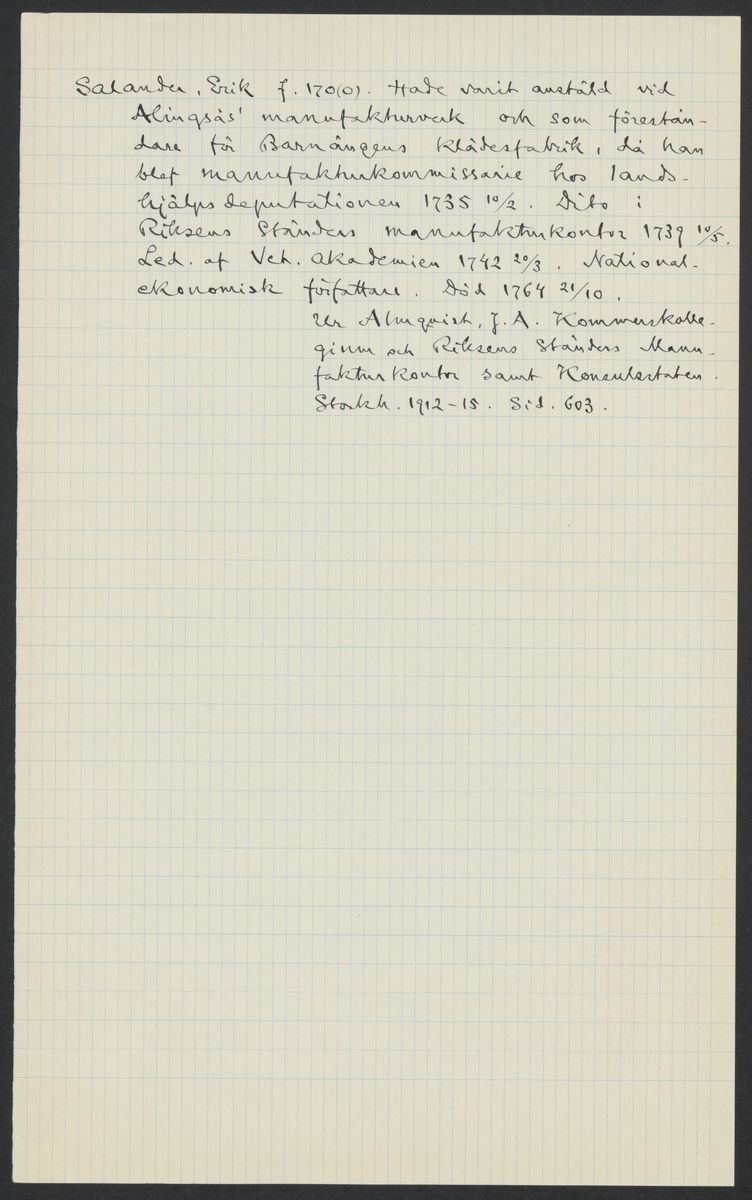 Salander, Erik f. 170(0). Hade varit anstäld vid
Alingsås' manufakturverk och som förestån-
dare för Barnängens klädesfabrik, då han
blef manufakturkommissarie hos lands-
hjälpsdeputationen 1735 10/2. Dito i
Riksens Ständers manufakturkontor 1739 10/5.
Led. af Vet. akademien 1742 20/3. National-
ekonomisk författare. Död 1764 21/10.
Ur Almquist, J. A. Kommerskolle-
gium och Riksens Ständers Manu-
fakturkontor samt Konsulsstaten.
Stockh. 1912-15. Sid. 603.